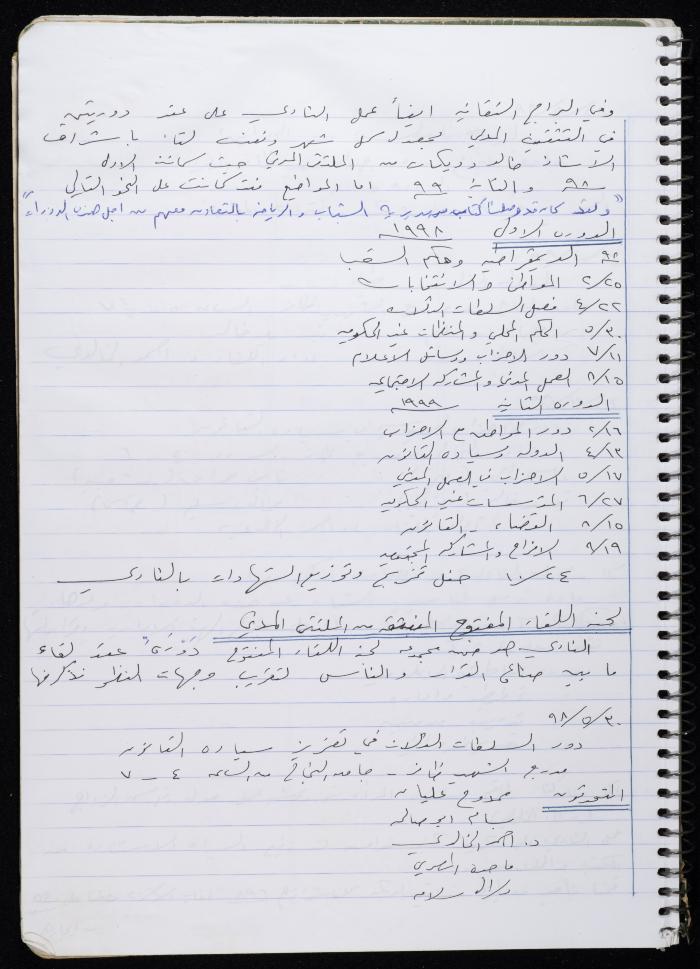 وفي البرامج الثقافية ايضاً عمل النادي على عقد دورتين
في التثقيف المدني بمعدل كل شهر ونصف لقاء باشراف
الاستاذ خالد دويكات من الملتقى المدني حيث كانت الاولى
٩٨ والثانية ٩٩ اما المواضيع فقد كانت على النحو التالي
الشباب والرياضة بالتعاون معهم من اجل هذه الدورات"
الدورة الاولى ١٩٩٨
الديمقراطية وحكم الشعب
٢/٢٥ المواطن والانتخابات
٤/٢٢ فصل السلطات الثلاث
٥/٣٠ الحكم المحلي والمنظمات غير الحكومية
٧/١١ دور الاحزاب ووسائل الاعلام
٨/١٥ العمل المدني والمشاركة الاجتماعية
الدورة الثانية ١٩٩٩
٢/١٦ دور المواطن مع الاحزاب
٤/١٣ الدولة وسيادة القانون
٥/١٧ الاحزاب في العمل المدني
٦/٢٧ المؤسسات غير الحكومية
٨/١٥ القضاء - القانون
٩/١٩ والمشاركة
١٠/٢٤ حفل تخريج وتوزيع الشهادات بالنادي
لجنة اللقاء المفتوح المنبثقة من الملتقى المدني
النادي هو ضمن مجموعة لجنة اللقاء المفتوح دورية عقد لقاء
ما بين صناع القرار والناس لتقريب وجهات النظر نذكر منها
٩٨/٥/٣٠
دور السلطات الثلاث في تعزيز سيادة القانون
مدرج الشهيد ظافر - جامعة النجاح من الساعة ٤ - ٧
المتحدثون ممدوح عليان
بسام ابو صالح
د. احمد الخالدي
ماجدة المصري
دلال سلامه